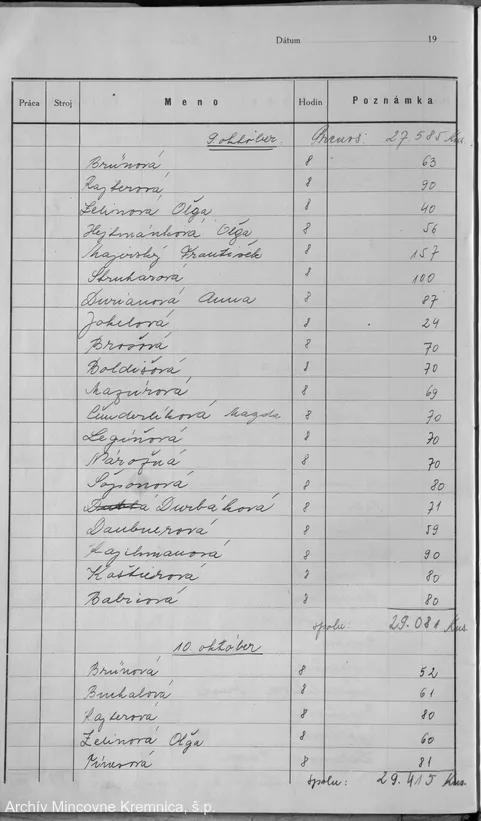 Dátum 19
Práca Stroj Meno Hodín Poznámka
9. október. Prenos: 27.585 Kus.
Brünová 8 63
Rajterová 8 90
Zelinová Oľga 8 40
Hejtmánková Oľga 8 56
Majerský Frantisek 8 157
Struharová 8 100
Durianová Anna 8 87
Jokelová 8 24
Brošová 8 70
Boldišová 8 70
Mazúrová 8 69
Čunderlíková Magda 8 70
Legíňová 8 70
Nárožná 8 70
Šojsonová 8 80
Durbáková 8 71
Daubnerová 8 59
Rajchmanová 8 90
Koštierová 8 80
Babicová 8 80
spolu: 29.081 Kus.
10. október
Brünová 8 52
Buchalová 8 61
Rajterová 8 80
Zelinová Oľga 8 60
8 81
spolu: 29.415 Kus.
Archív Mincovne Kremnica, š.p.